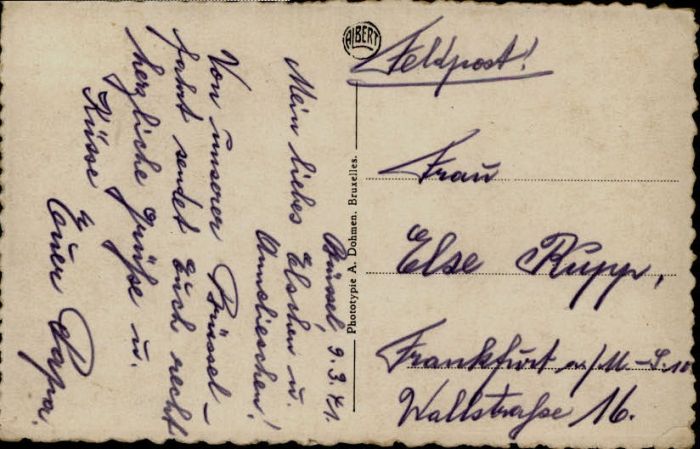 Brüssel, 9.3.41.
Mein liebes Elschen u.
Annelieschen!
Von unserer Brüssel-
fahrt sendet Euch recht
herzliche Grüße u.
Küsse
Euer Papa.
Phototypie A. Dohmen. Bruxelles.
ALBERT
Feldpost!
Frau
Else Rupp,
Frankfurt a/M-S.10
Wallstraße 16.